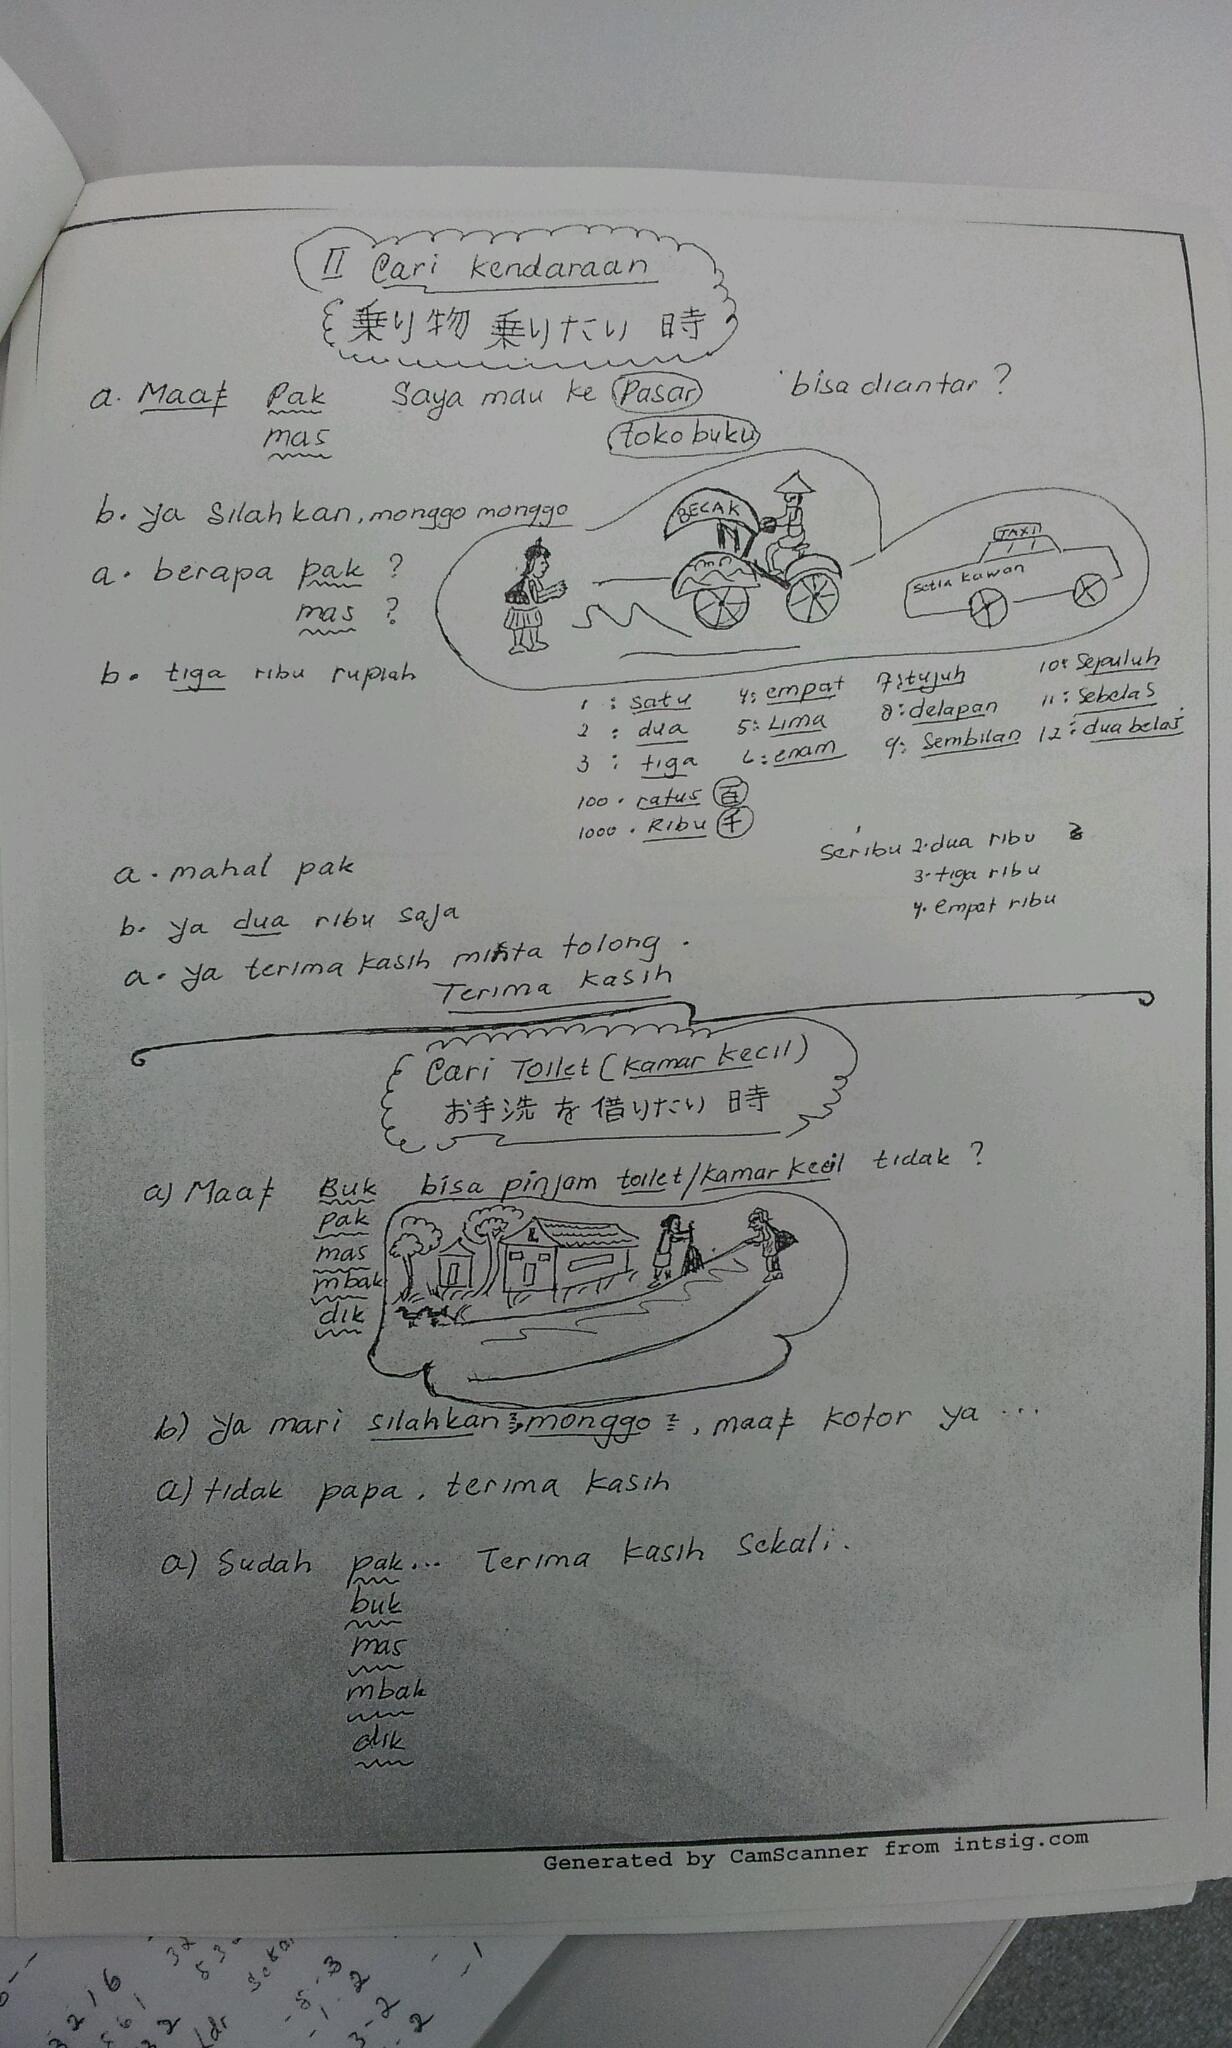 II Cari kendaraan
乗り物 乗りたい 時
a. Maaf Pak Saya mau ke Pasar bisa diantar?
mas toko buku
b. ya silahkan, monggo monggo
BECAK
TAXI
setia kawan
a. berapa pak ?
mas ?
b. tiga ribu rupiah
1 : satu 4: empat 7: tujuh 10: sepuluh
2 : dua 5: Lima 8: delapan 11: sebelas
3 : tiga 6: enam 9: Sembilan 12: dua belas
100. ratus 百
1000. Ribu 千
Seribu 2. dua ribu
3. tiga ribu
4. empat ribu
a. mahal pak
b. ya dua ribu saja
a. ya terima kasih minta tolong.
Terima kasih
Cari Toilet (kamar kecil)
お手洗を借りたい時
a) Maaf Buk bisa pinjam toilet/kamar kecil tidak ?
pak
mas
mbak
dik
b) ya mari silahkan², monggo², maaf kotor ya ...
a) tidak papa, terima kasih
a) Sudah pak... Terima kasih sekali.
buk
mas
mbak
dik
Generated by CamScanner from intsig.com